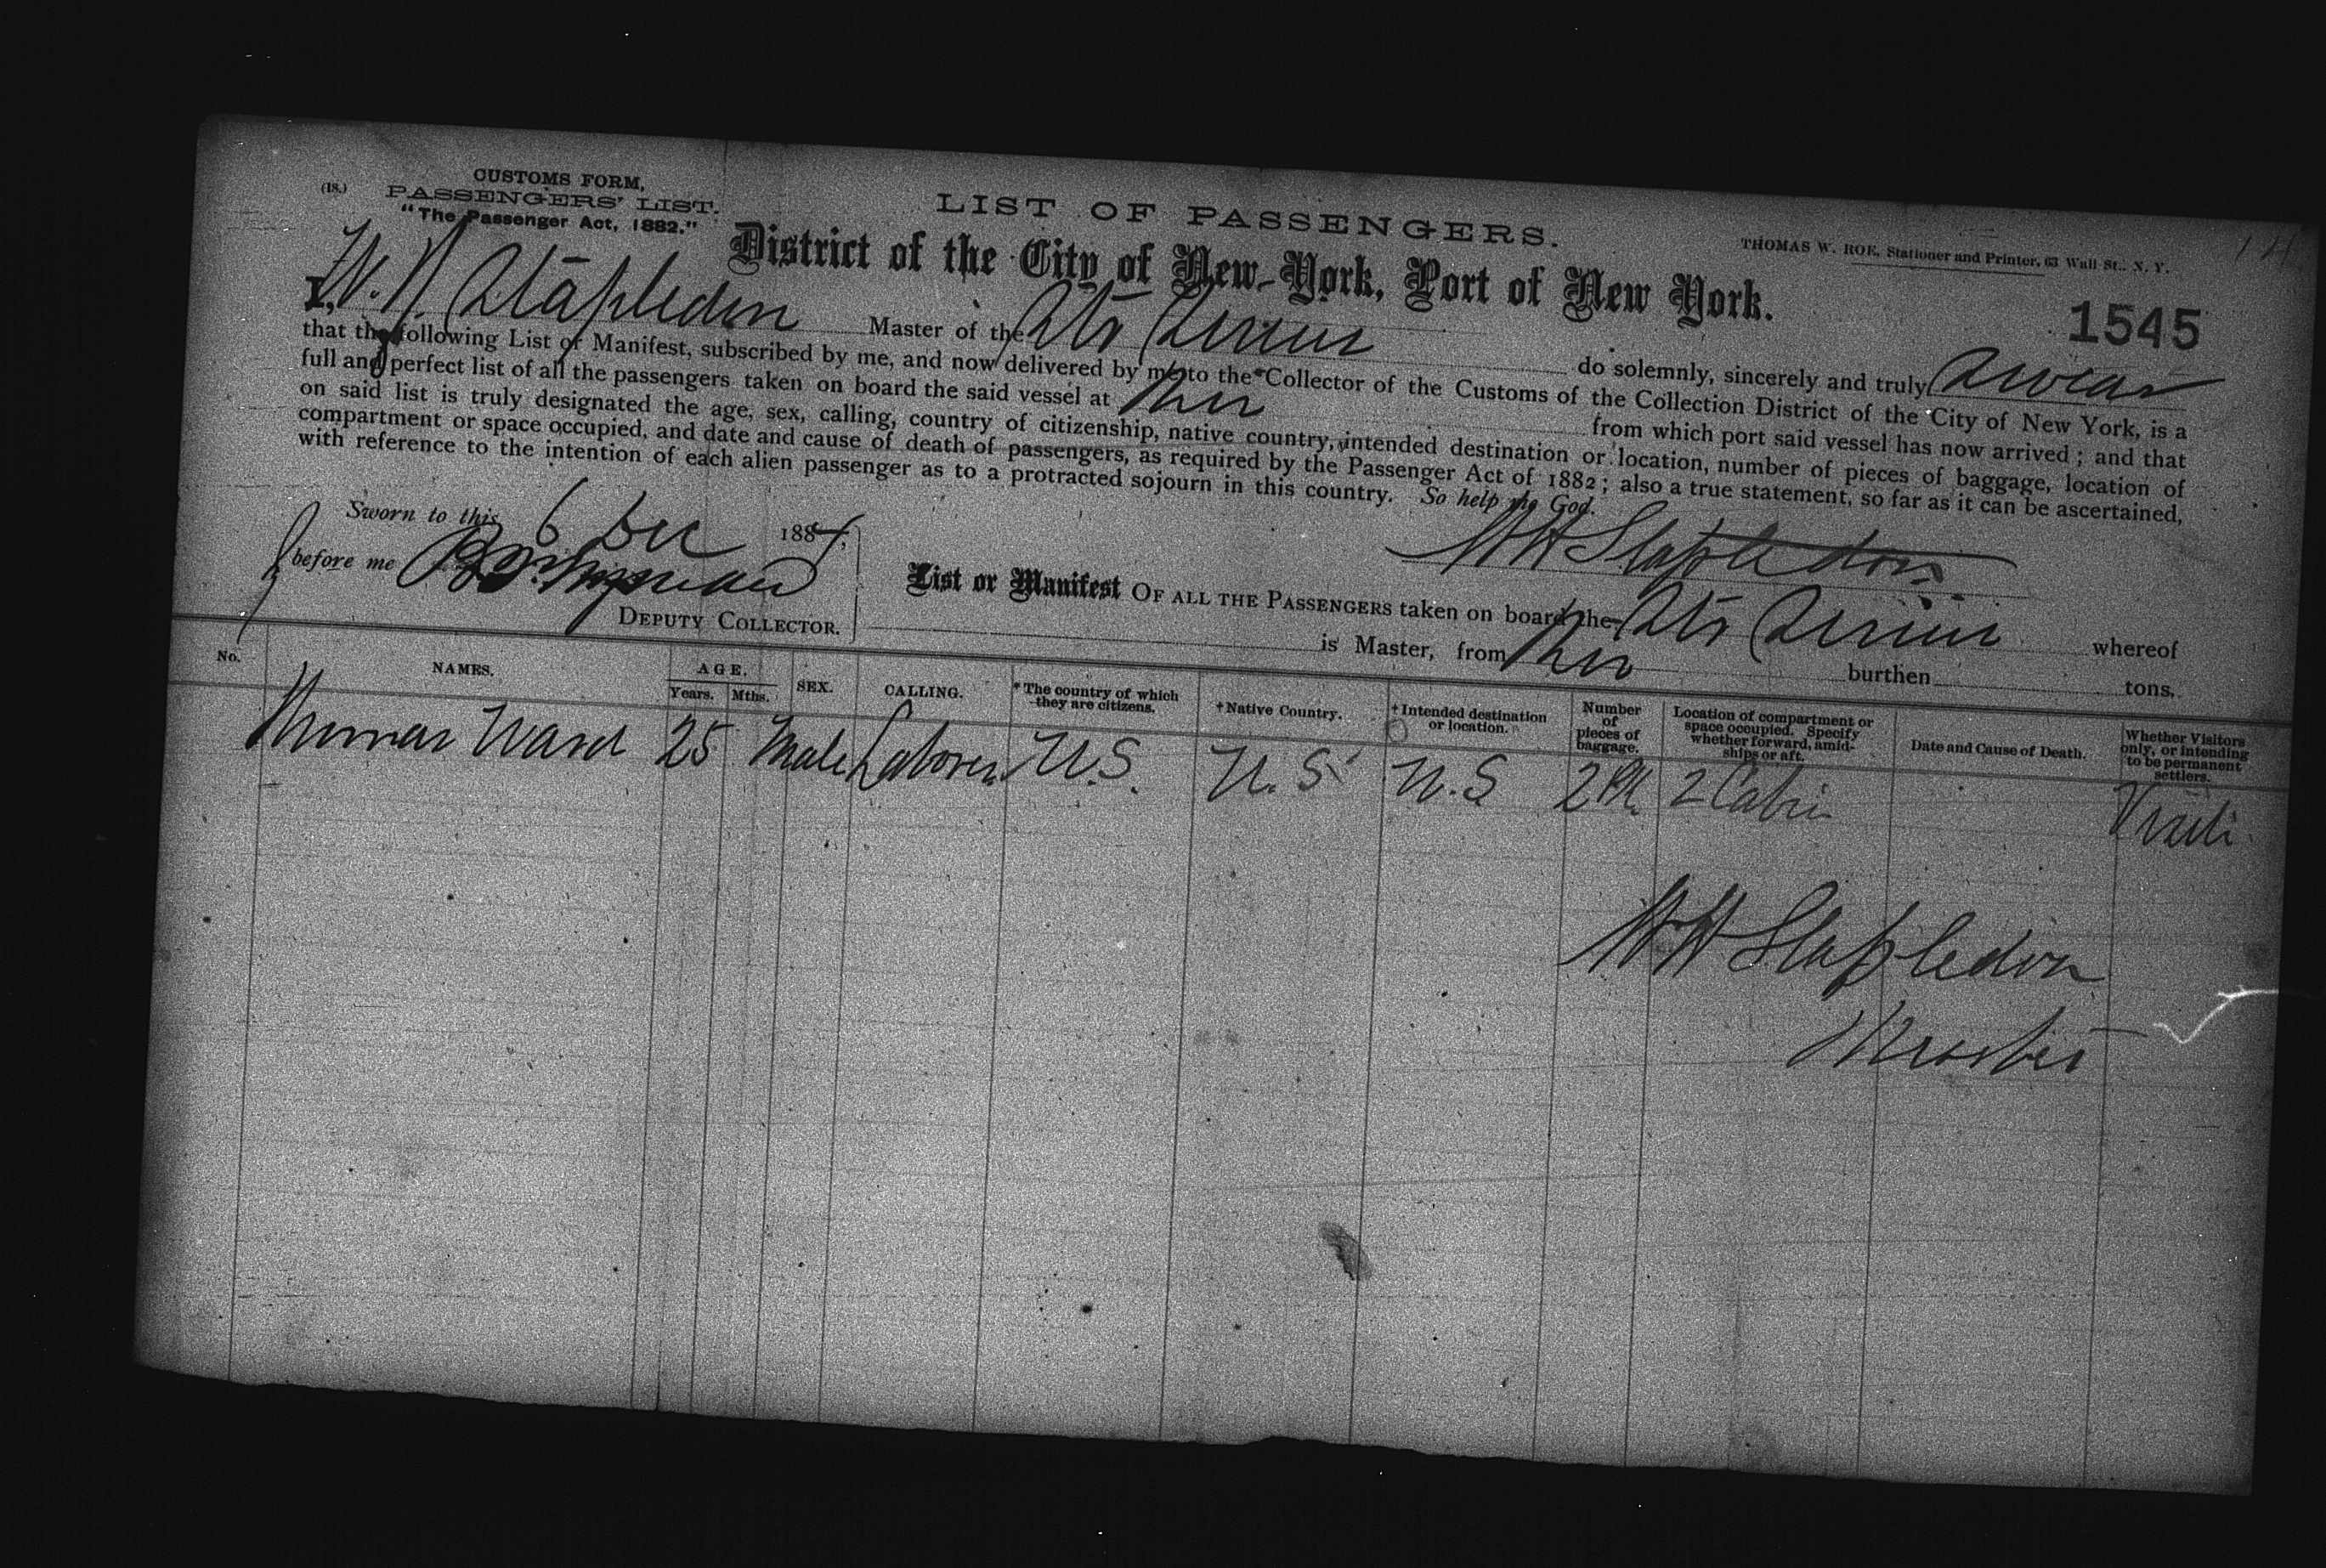 (18.)
CUSTOMS FORM,
PASSENGERS' LIST.
"The Passenger Act, 1882."
LIST OF PASSENGERS.
THOMAS W. ROE, Stationer and Printer, 63 Wall St., N. Y.
District of the City of New-York, Port of New York.
1545
I, W. H. Stapledon Master of the Str Sirius do solemnly, sincerely and truly Swear
that the following List or Manifest, subscribed by me, and now delivered by me to the Collector of the Customs of the Collection District of the City of New York, is a
full and perfect list of all the passengers taken on board the said vessel at Rio from which port said vessel has now arrived; and that
on said list is truly designated the age, sex, calling, country of citizenship, native country, intended destination or location, number of pieces of baggage, location of
compartment or space occupied, and date and cause of death of passengers, as required by the Passenger Act of 1882; also a true statement, so far as it can be ascertained,
with reference to the intention of each alien passenger as to a protracted sojourn in this country. So help me God.
Sworn to this 6 Dec 1884,
WH Stapledon
before me
DEPUTY COLLECTOR.
List or Manifest OF ALL THE PASSENGERS taken on board the Str Sirius whereof
is Master, from Rio burthen tons.
No. NAMES. AGE. Years. Mths. SEX. CALLING. * The country of which they are citizens. † Native Country. † Intended destination or location. Number of pieces of baggage. Location of compartment or space occupied. Specify whether forward, amidships or aft. Date and Cause of Death. Whether Visitors only, or intending to be permanent settlers.
Thomas Ward 25 Male Laborer U.S. U.S. U.S 2 Pk 2 Cabin
WH Stapledon
Master